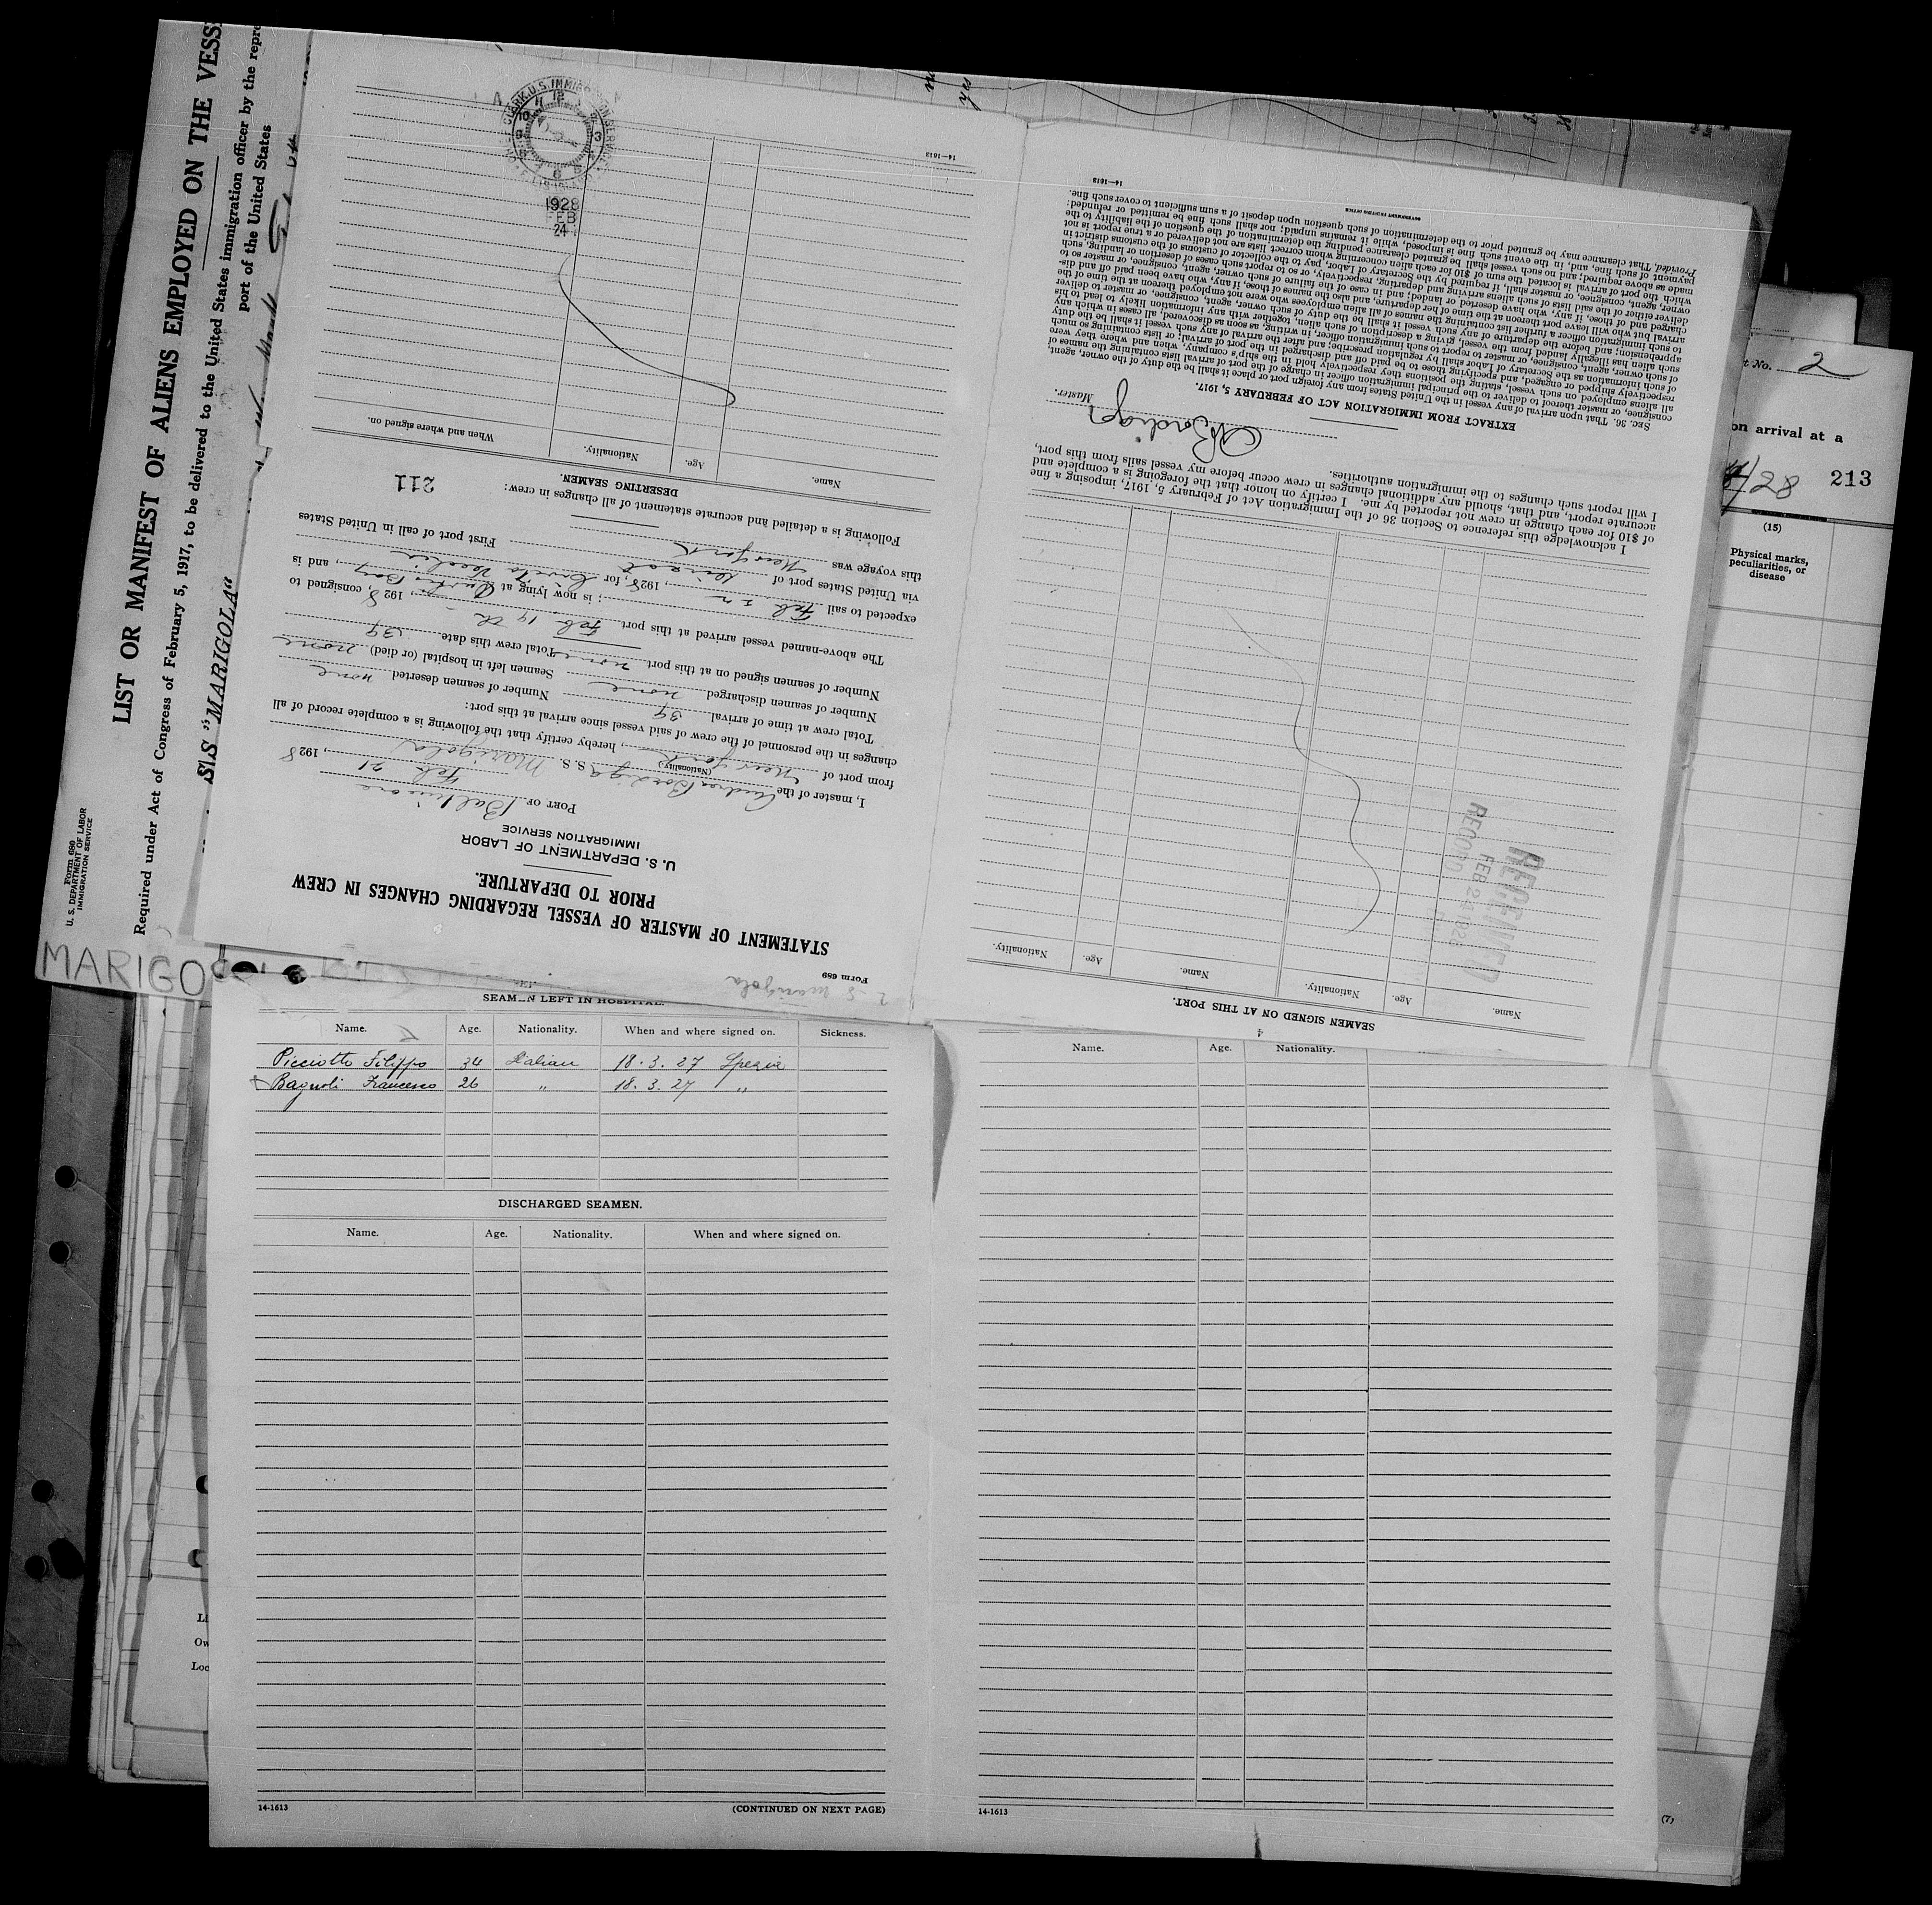 LIST OR MANIFEST OF ALIENS EMPLOYED ON THE VESS
Required under Act of Congress of February 5, 1917, to be delivered to the United States immigration officer by the repre
port of the United States
S/S "MARIGOLA"
Form 680
U. S. DEPARTMENT OF LABOR
IMMIGRATION SERVICE
MARIGO
Form 689
S S Marigola
STATEMENT OF MASTER OF VESSEL REGARDING CHANGES IN CREW
PRIOR TO DEPARTURE.
U. S. DEPARTMENT OF LABOR
IMMIGRATION SERVICE
PORT OF Baltimore
Feb 21, 1928
I, master of the Andrea Bordiga S. S. Marigola
(Nationality.)
from port of New York, hereby certify that the following is a complete record of all
changes in the personnel of the crew of said vessel since arrival at this port:
Total crew at time of arrival 39
Number of seamen discharged none Number of seamen deserted none
Number of seamen signed on at this port none Seamen left in hospital (or died) none
Total crew this date 39
The above-named vessel arrived at this port Feb. 19th, 1928, consigned to
; is now lying at Curtis Bay, and is
expected to sail Feb. , 1928, for
via United States port of direct First port of call in United States
this voyage was New York
Following is a detailed and accurate statement of all changes in crew:
211
DESERTING SEAMEN
Name. Age. Nationality. When and where signed on.
14-1613
CLERK, U.S. IMMIGRATION SERVICE
1928
FEB
24
SEAMEN SIGNED ON AT THIS PORT.
4
Name. Age. Nationality. Name. Age. Nationality.
RECEIVED
FEB 24 1928
RECORD
I acknowledge this reference to Section 36 of the Immigration Act of February 5, 1917, imposing a fine
of $10 for each change in crew not reported by me. I certify on honor that the foregoing is a complete and
accurate report, and that, should any additional changes in crew occur before my vessel sails from this port,
I will report such changes to the immigration authorities.
A Bordiga
Master.
EXTRACT FROM IMMIGRATION ACT OF FEBRUARY 5, 1917.
SEC. 36. That upon arrival of any vessel in the United States from any foreign port or place it shall be the duty of the owner, agent,
consignee, or master thereof to deliver to the principal immigration officer in charge of the port of arrival lists containing the names of
all aliens employed on such vessel, stating the positions they respectively hold in the ship's company, when and where they were
respectively shipped or engaged, and specifying those to be paid off and discharged in the port of arrival; or lists containing so much
of such information as the Secretary of Labor shall by regulation prescribe; and after the arrival of any such vessel it shall be the duty
of such owner, agent, consignee, or master to report to such immigration officer, in writing, as soon as discovered, all cases in which any
such alien has illegally landed from the vessel, giving a description of such alien, together with any information likely to lead to his
apprehension; and before the departure of any such vessel it shall be the duty of such owner, agent, consignee, or master to deliver
to such immigration officer a further list containing the names of all alien employees who were not employed thereon at the time of the
arrival but who will leave port thereon at the time of her departure, and also the names of those, if any, who have been paid off and dis-
charged and of those, if any, who have deserted or landed; and in case of the failure of such owner, agent, consignee, or master so to
deliver either of the said lists of such aliens arriving and departing, respectively, or so to report such cases of desertion or landing, such
owner, agent, consignee, or master, shall, if required by the Secretary of Labor, pay to the collector of customs of the customs district in
which the port of arrival is located the sum of $10 for each alien concerning whom correct lists are not delivered or a true report is not
made as above required; and no such vessel shall be granted clearance pending the determination of the question of the liability to the
payment of such fine, and, in the event such fine is imposed, while it remains unpaid; nor shall such fine be remitted or refunded:
Provided, That clearance may be granted prior to the determination of such question upon deposit of a sum sufficient to cover such fine.
GOVERNMENT PRINTING OFFICE
14-1613
t No. 2
on arrival at a
/28 213
(15)
Physical marks,
peculiarities, or
disease
SEAMEN LEFT IN HOSPITAL.
Name. Age. Nationality. When and where signed on. Sickness.
Picciotto Filippo 34 Italian 18.3.27 Spezia
Bagnoli Francesco 26 " 18.3.27 "
DISCHARGED SEAMEN.
Name. Age. Nationality. When and where signed on.
14-1613
(CONTINUED ON NEXT PAGE)
Name. Age. Nationality.
14-1613
(7)
Ow
Loc